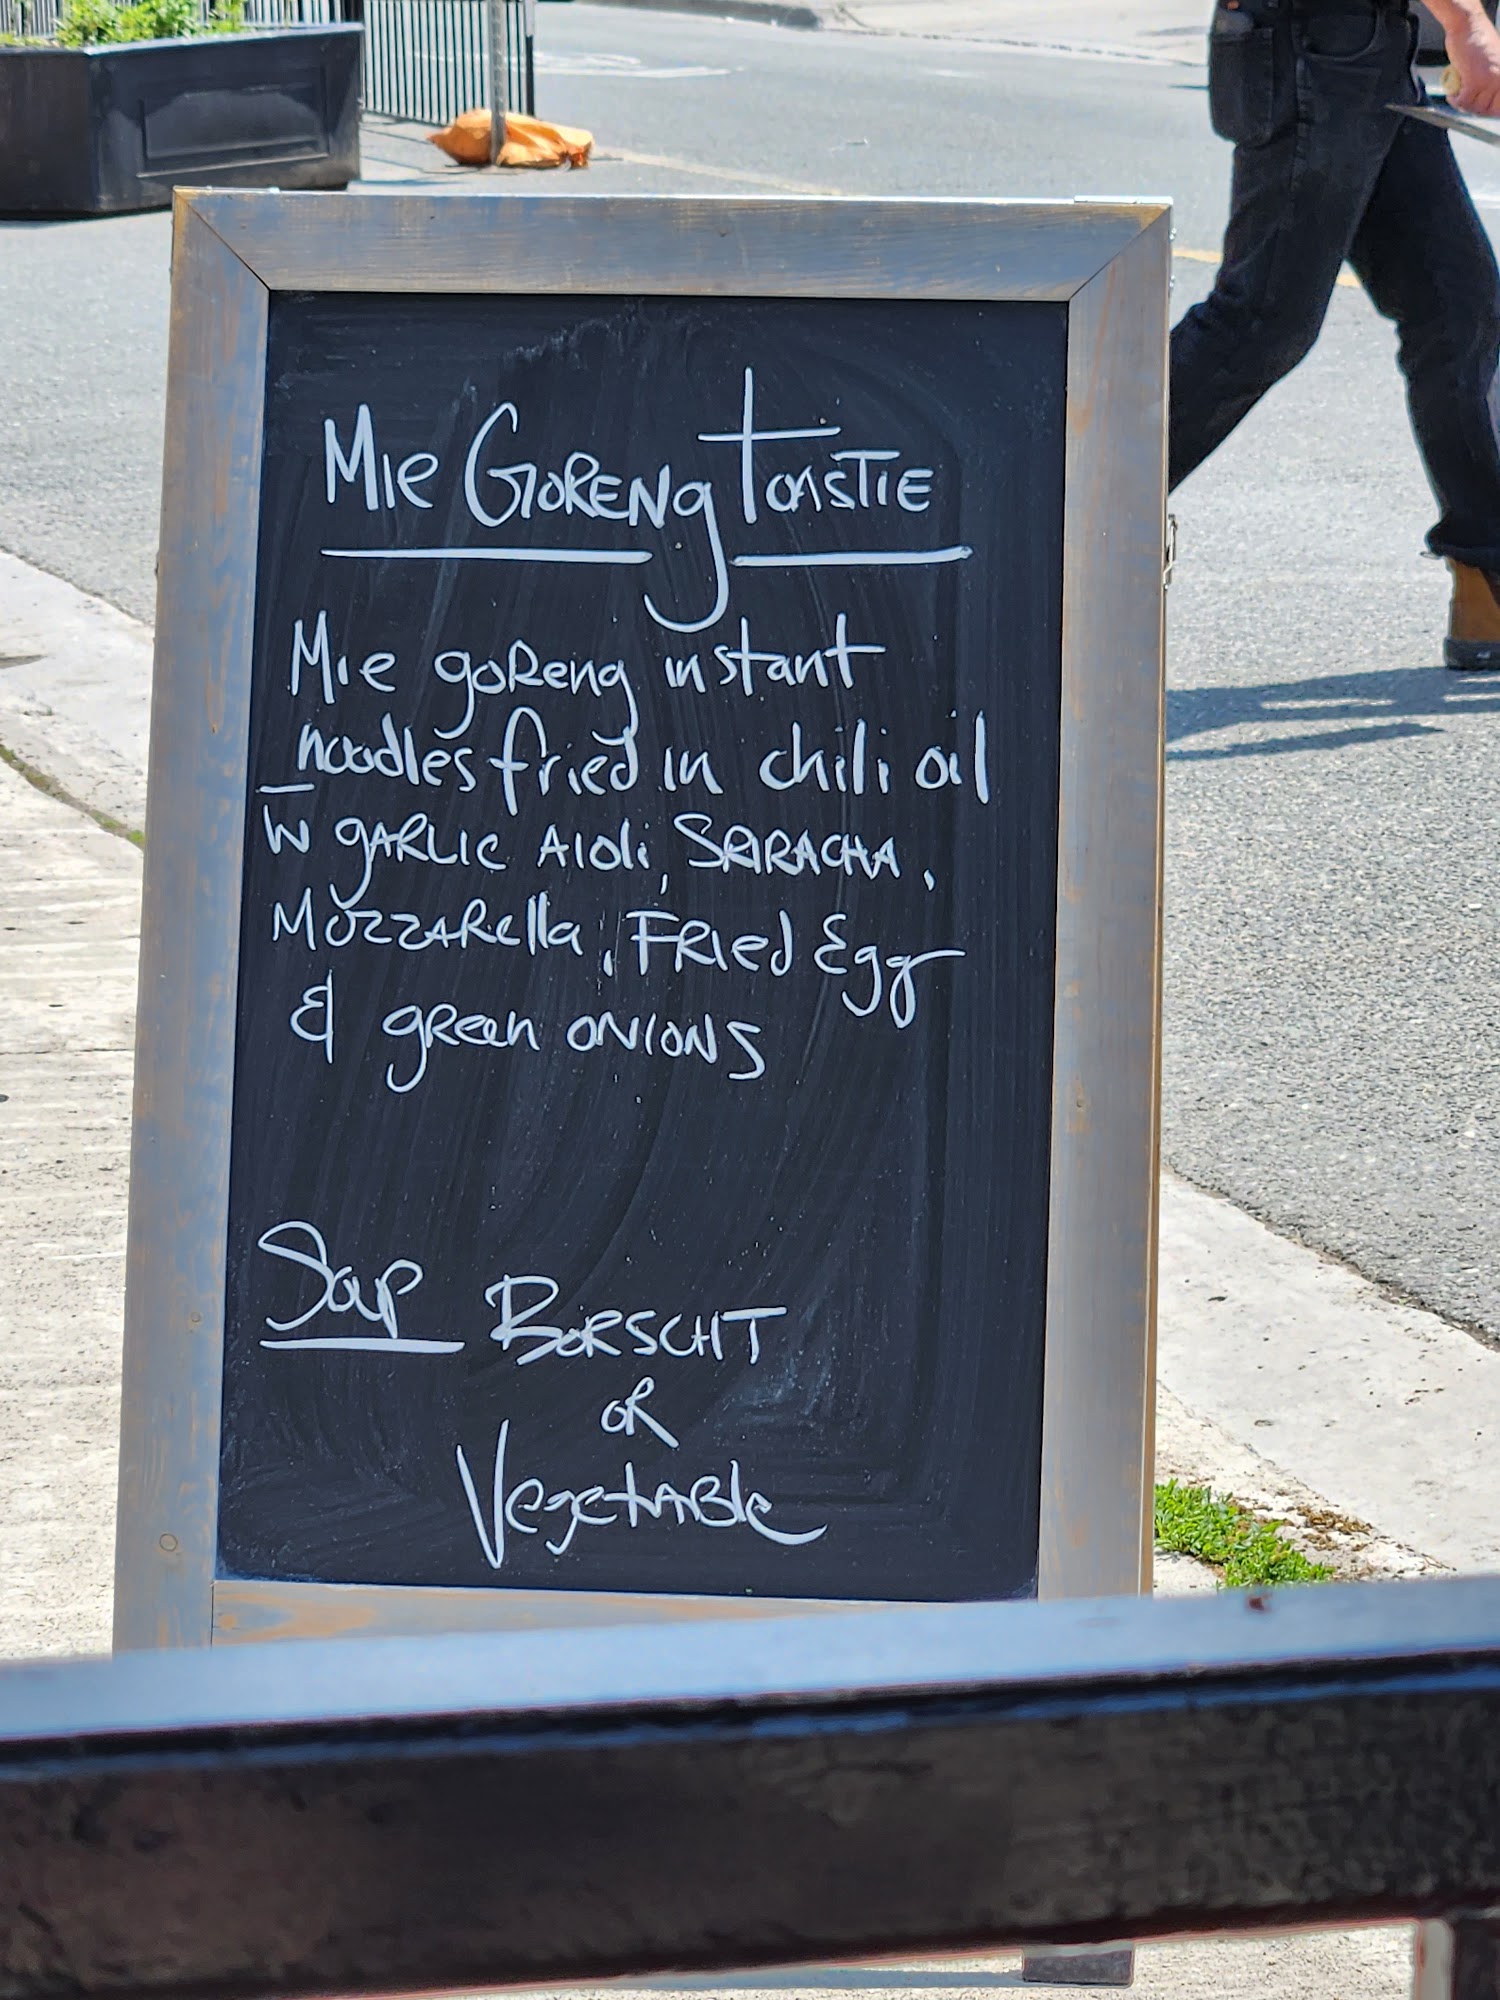 Mie Goreng Toastie
Mie goreng instant
noodles fried in chili oil
W garlic Aioli, SRIRACHA,
Mozzarella, Fried Egg
& green onions
Soup Borscht
or
Vegetable